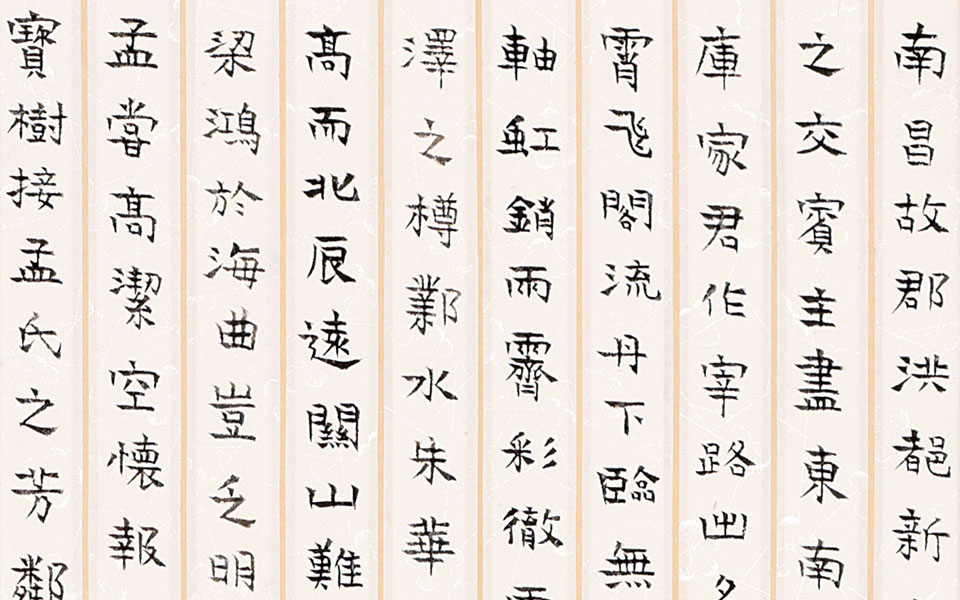 南昌故郡洪都新
之交賓主盡東南
庫家君作宰路出
霄飞閣流丹下臨無
軸虹銷雨霽彩徹
澤之樽鄴水朱華
髙而北辰遠關山難
梁鴻於海曲豈乏明
孟嘗髙潔空懷報
寶樹接孟氏之芳鄰